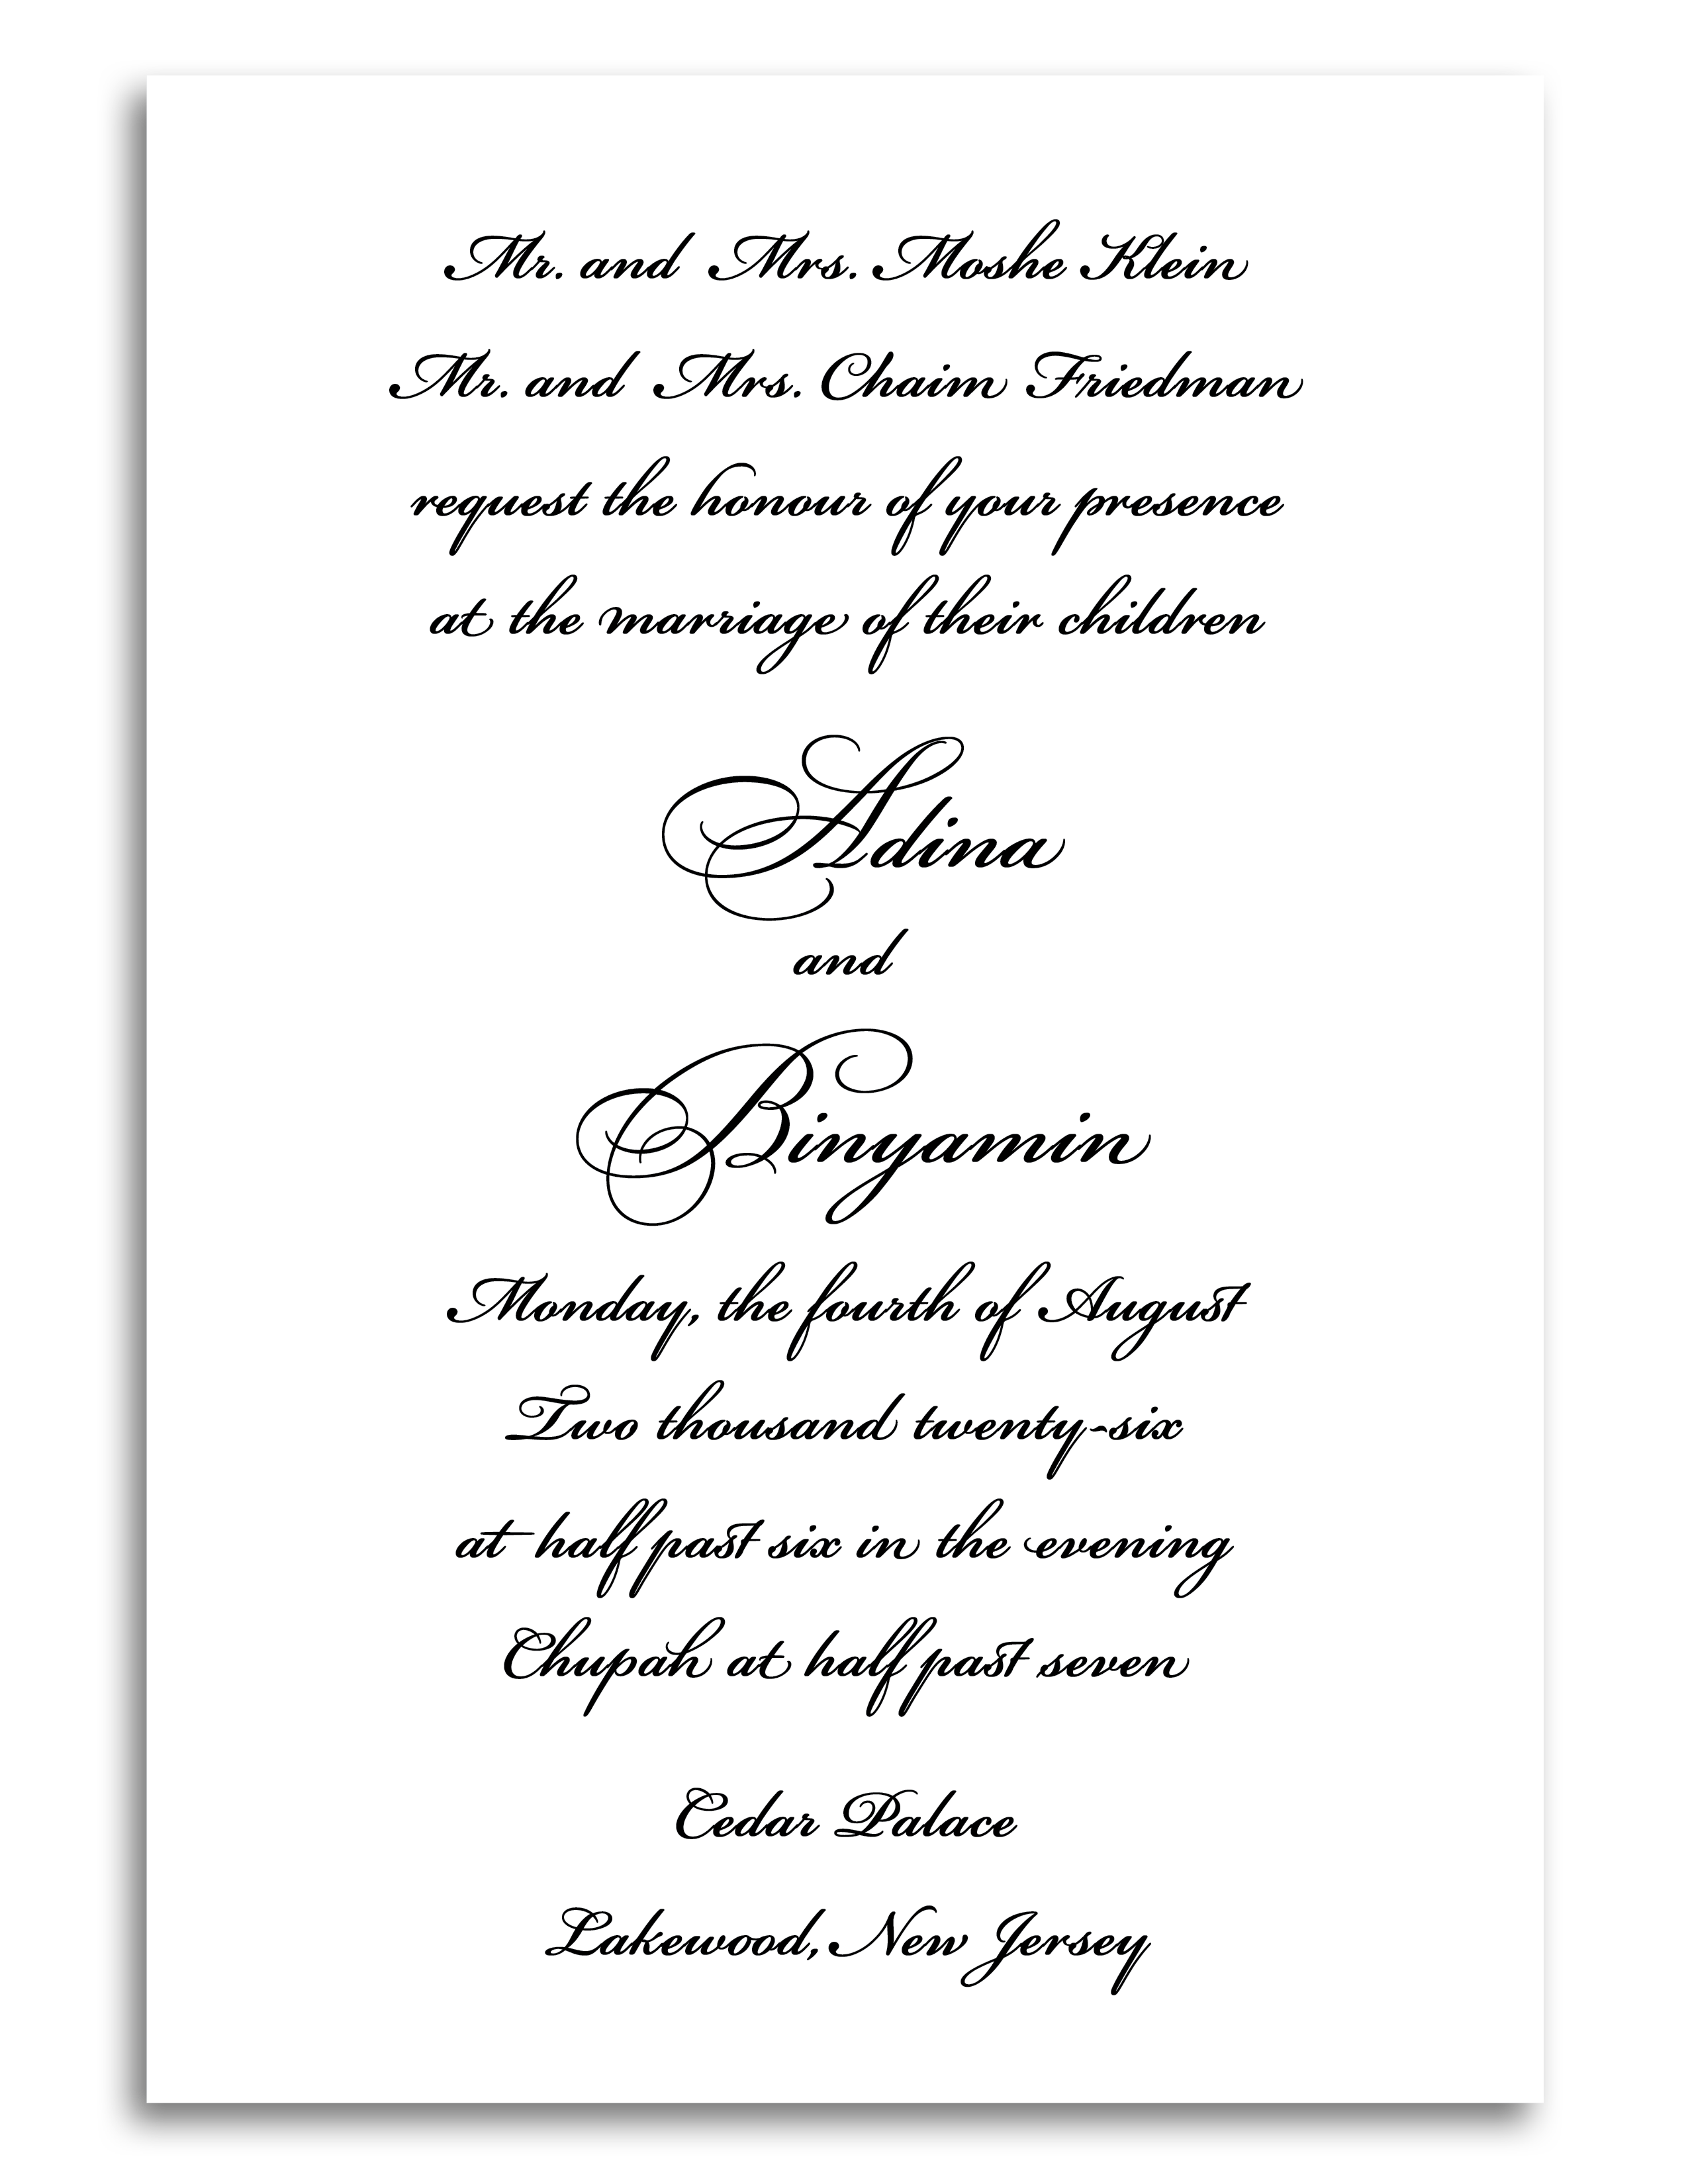 Mr. and Mrs. Moshe Klein
Mr. and Mrs. Chaim Friedman
request the honour of your presence
at the marriage of their children
Adina
and
Binyamin
Monday, the fourth of August
Two thousand twenty-six
at half past six in the evening
Chupah at half past seven
Cedar Palace
Lakewood, New Jersey